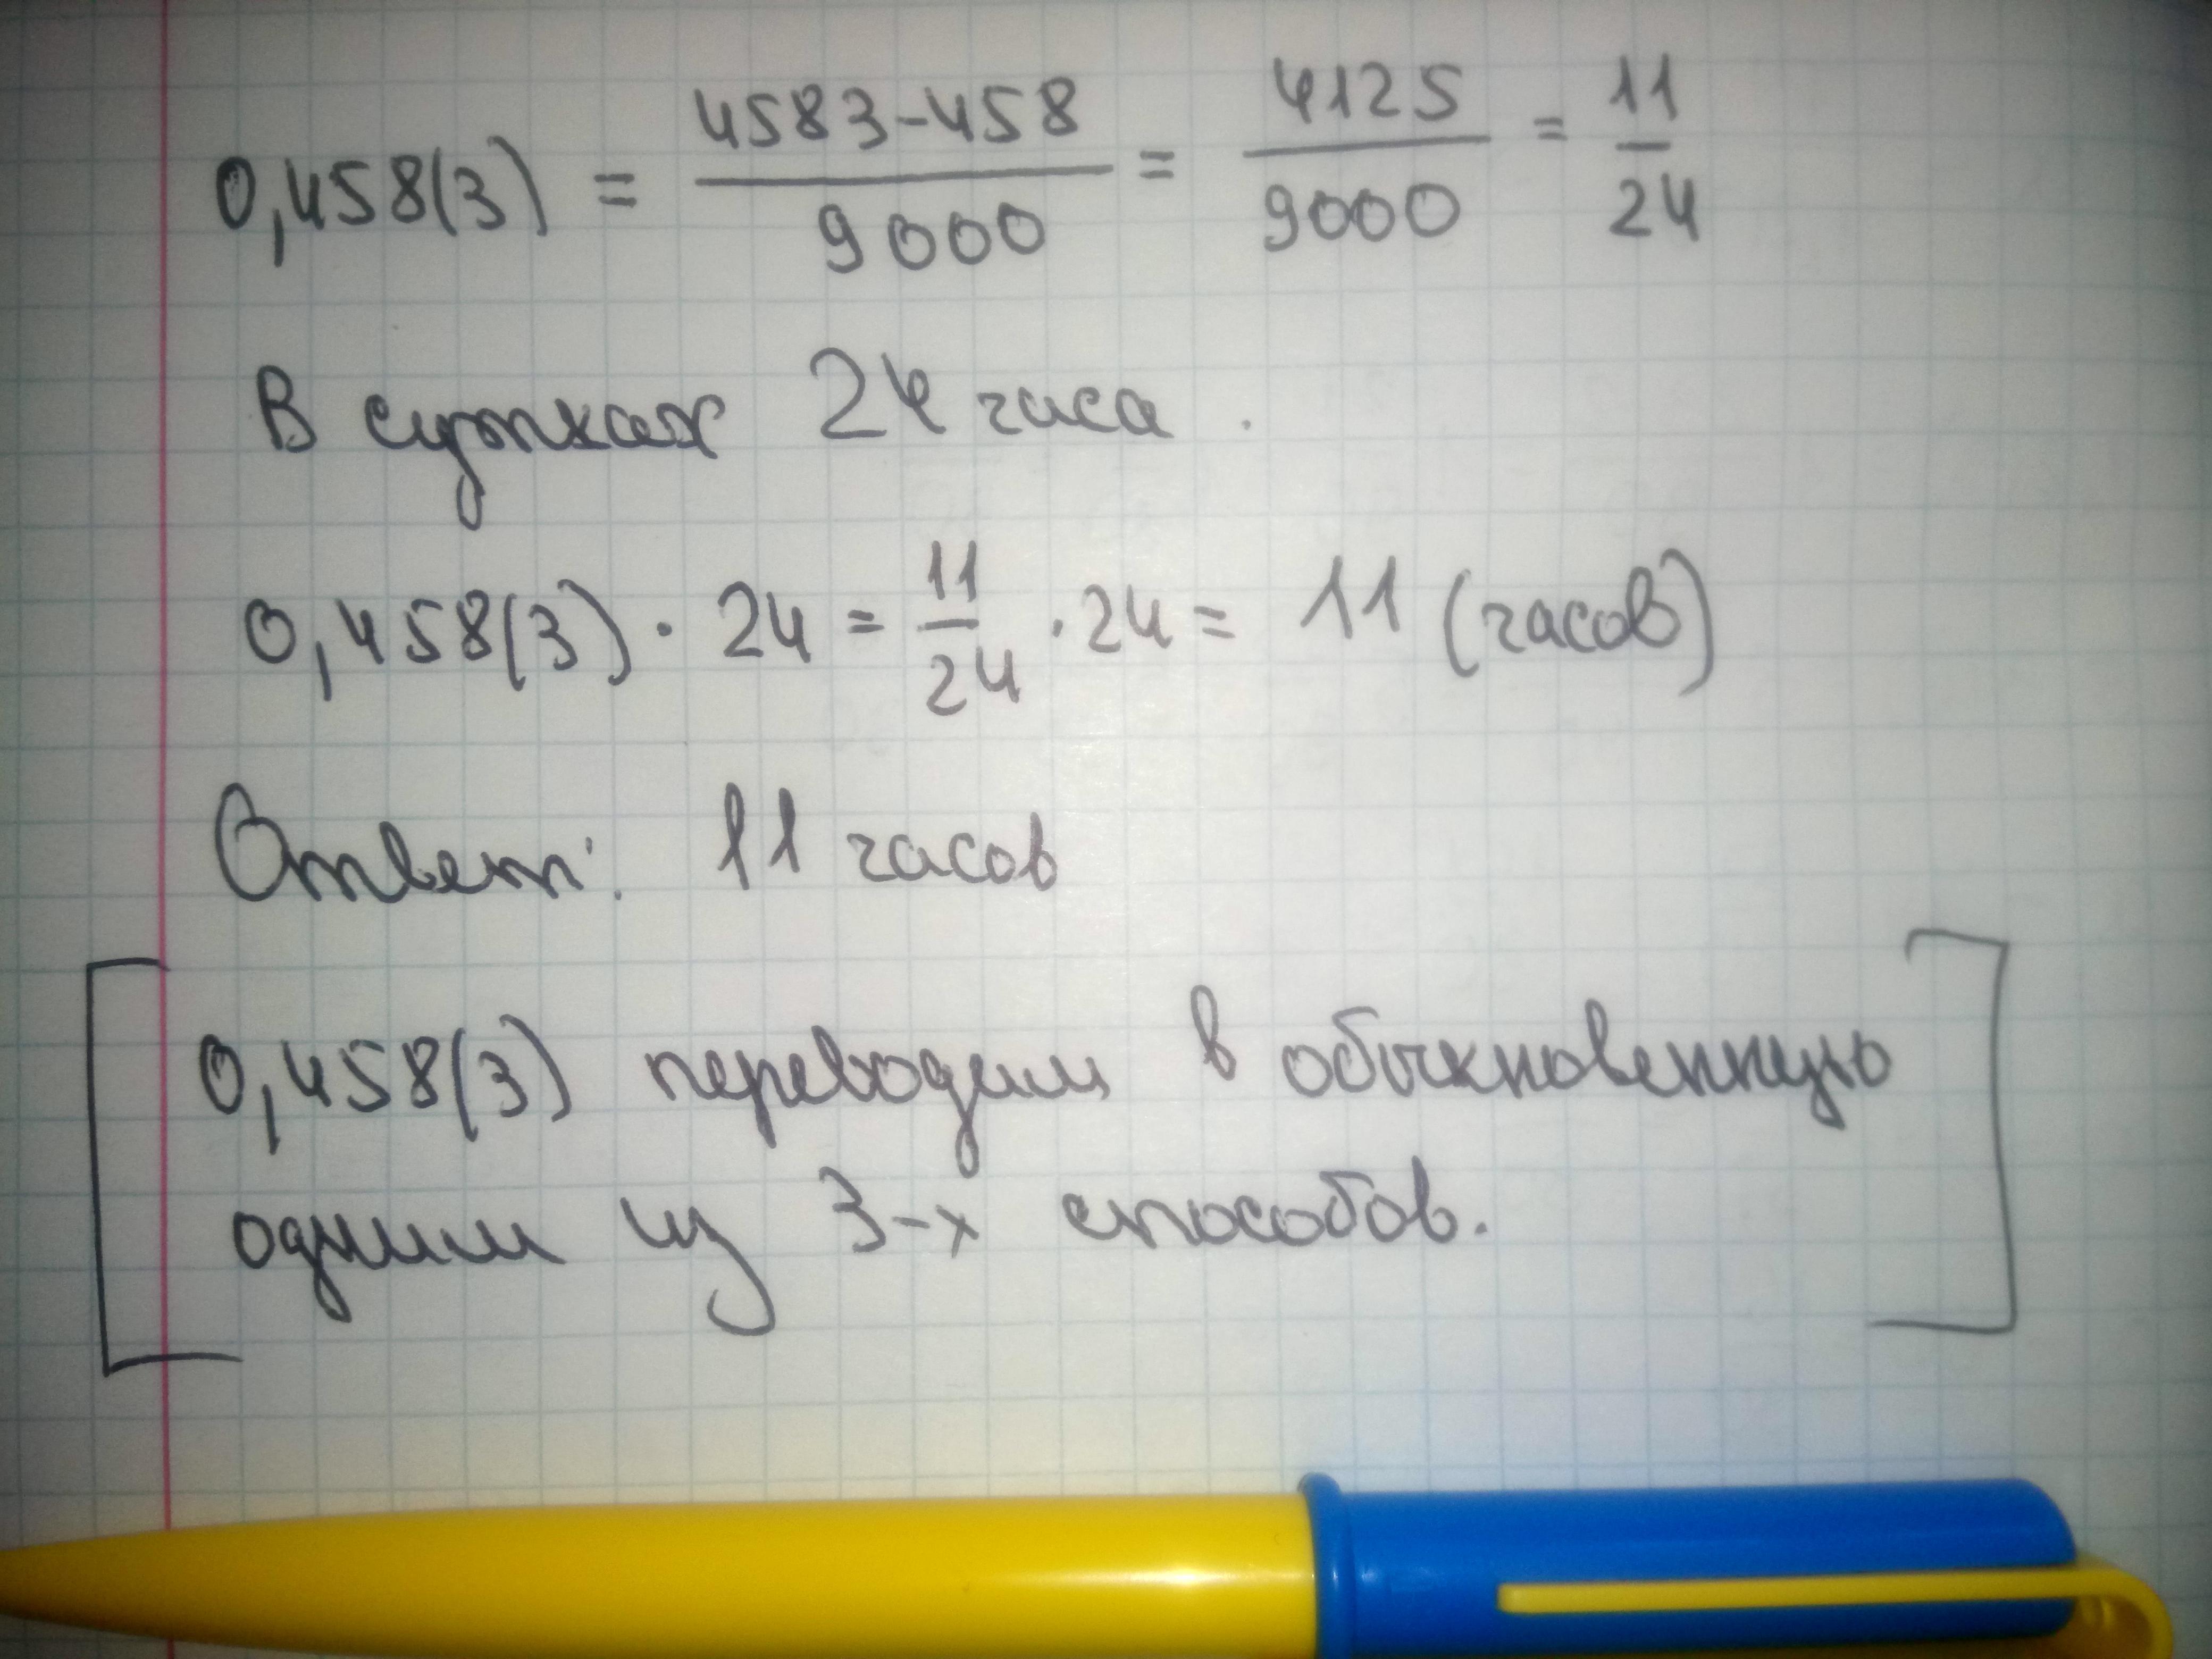 0,458(3) = 4583-458/9000 = 4125/9000 = 11/24
В сутках 24 часа.
0,458(3) · 24 = 11/24 · 24 = 11 (часов)
Ответ: 11 часов
[0,458(3) переводим в обыкновенную
одним из 3-х способов.]